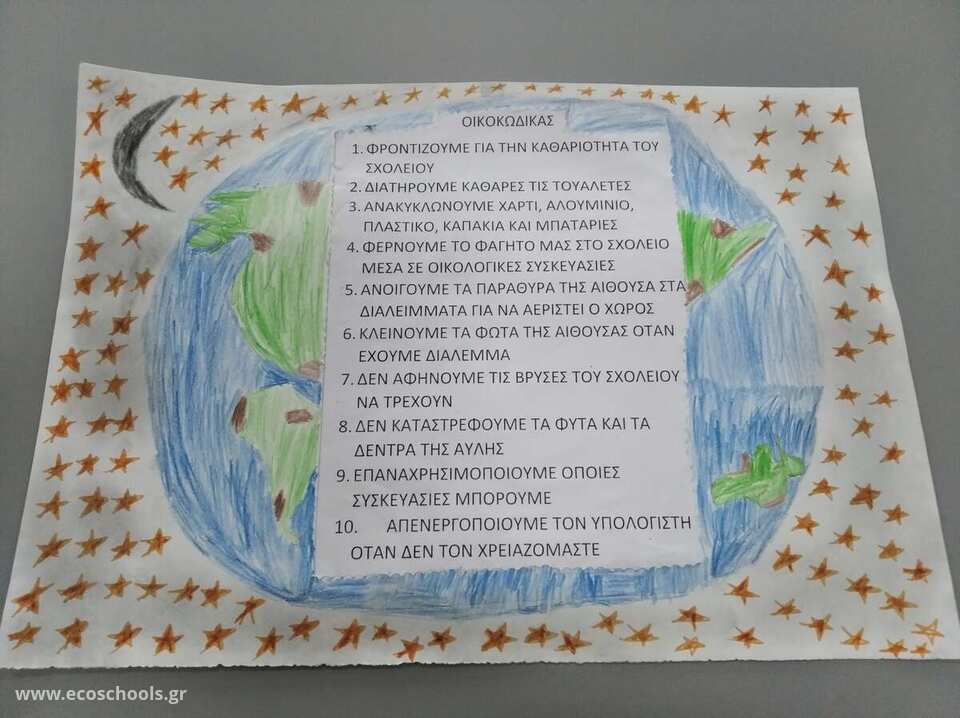 ΟΙΚΟΚΩΔΙΚΑΣ
1. ΦΡΟΝΤΙΖΟΥΜΕ ΓΙΑ ΤΗΝ ΚΑΘΑΡΙΟΤΗΤΑ ΤΟΥ
ΣΧΟΛΕΙΟΥ
2. ΔΙΑΤΗΡΟΥΜΕ ΚΑΘΑΡΕΣ ΤΙΣ ΤΟΥΑΛΕΤΕΣ
3. ΑΝΑΚΥΚΛΩΝΟΥΜΕ ΧΑΡΤΙ, ΑΛΟΥΜΙΝΙΟ,
ΠΛΑΣΤΙΚΟ, ΚΑΠΑΚΙΑ ΚΑΙ ΜΠΑΤΑΡΙΕΣ
4. ΦΕΡΝΟΥΜΕ ΤΟ ΦΑΓΗΤΟ ΜΑΣ ΣΤΟ ΣΧΟΛΕΙΟ
ΜΕΣΑ ΣΕ ΟΙΚΟΛΟΓΙΚΕΣ ΣΥΣΚΕΥΑΣΙΕΣ
5. ΑΝΟΙΓΟΥΜΕ ΤΑ ΠΑΡΑΘΥΡΑ ΤΗΣ ΑΙΘΟΥΣΑ ΣΤΑ
ΔΙΑΛΕΙΜΜΑΤΑ ΓΙΑ ΝΑ ΑΕΡΙΣΤΕΙ Ο ΧΩΡΟΣ
6. ΚΛΕΙΝΟΥΜΕ ΤΑ ΦΩΤΑ ΤΗΣ ΑΙΘΟΥΣΑΣ ΟΤΑΝ
ΕΧΟΥΜΕ ΔΙΑΛΕΜΜΑ
7. ΔΕΝ ΑΦΗΝΟΥΜΕ ΤΙΣ ΒΡΥΣΕΣ ΤΟΥ ΣΧΟΛΕΙΟΥ
ΝΑ ΤΡΕΧΟΥΝ
8. ΔΕΝ ΚΑΤΑΣΤΡΕΦΟΥΜΕ ΤΑ ΦΥΤΑ ΚΑΙ ΤΑ
ΔΕΝΤΡΑ ΤΗΣ ΑΥΛΗΣ
9. ΕΠΑΝΑΧΡΗΣΙΜΟΠΟΙΟΥΜΕ ΟΠΟΙΕΣ
ΣΥΣΚΕΥΑΣΙΕΣ ΜΠΟΡΟΥΜΕ
10. ΑΠΕΝΕΡΓΟΠΟΙΟΥΜΕ ΤΟΝ ΥΠΟΛΟΓΙΣΤΗ
ΟΤΑΝ ΔΕΝ ΤΟΝ ΧΡΕΙΑΖΟΜΑΣΤΕ
www.ecoschools.gr